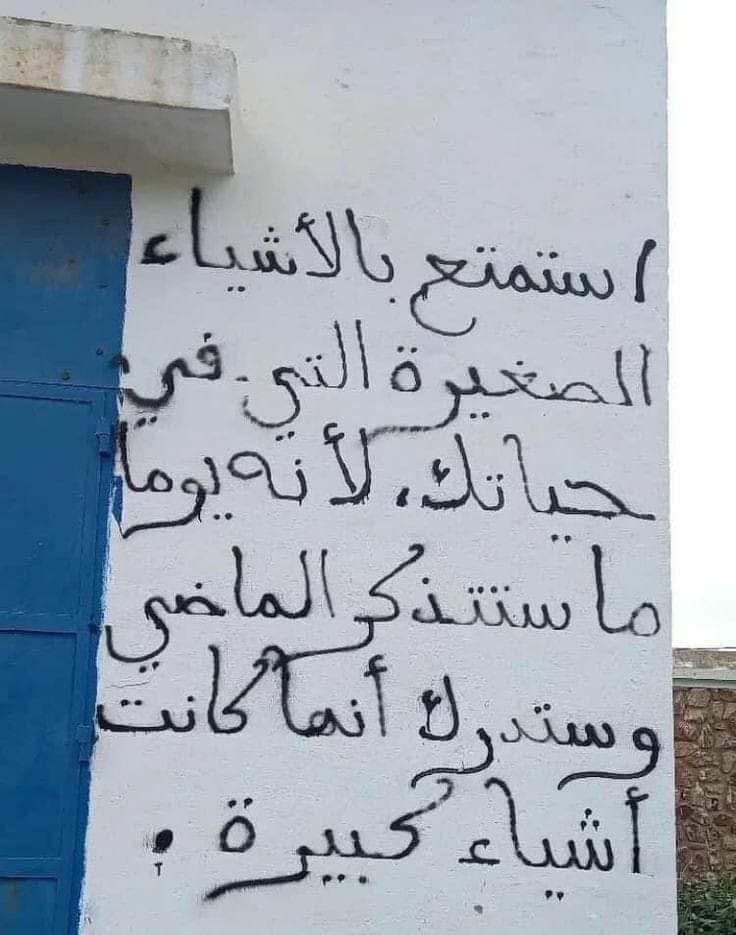 استمتع بالأشياء
الصغيرة التي في
حياتك، لأنه يوما
ما ستتذكر الماضي
وستدرك أنها كانت
أشياء كبيرة .